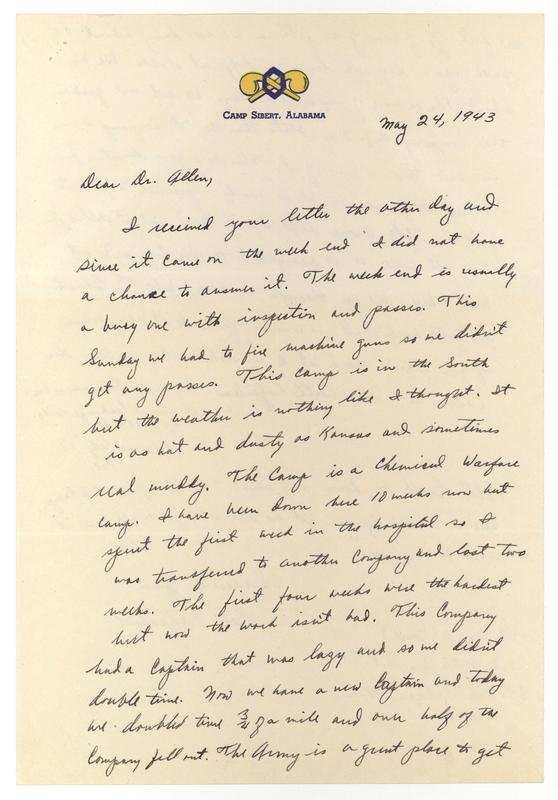 Camp Sibert, Alabama
May 24, 1943
Dear Dr. Allen,
I received your letter the other day and
since it came on the week end I did not have
a chance to answer it. The week end is usually
a busy one with inspection and passes. This
Sunday we had to fire machine guns so we didn't
get any passes. This camp is in the South
but the weather is nothing like I thought. It
is as hot and dusty as Kansas and sometimes
real muddy. The Camp is a Chemical Warfare
camp. I have been down here 10 weeks now but
spent the first week in the hospital so I
was transferred to another Company and lost two
weeks. The first four weeks were the hardest
but now the work isn't bad. This Company
had a Captain that was lazy and so we didn't
double time. Now we have a new Captain and today
we doubled time 3/4 of a mile and over half of the
Company fell out. The Army is a great place to get